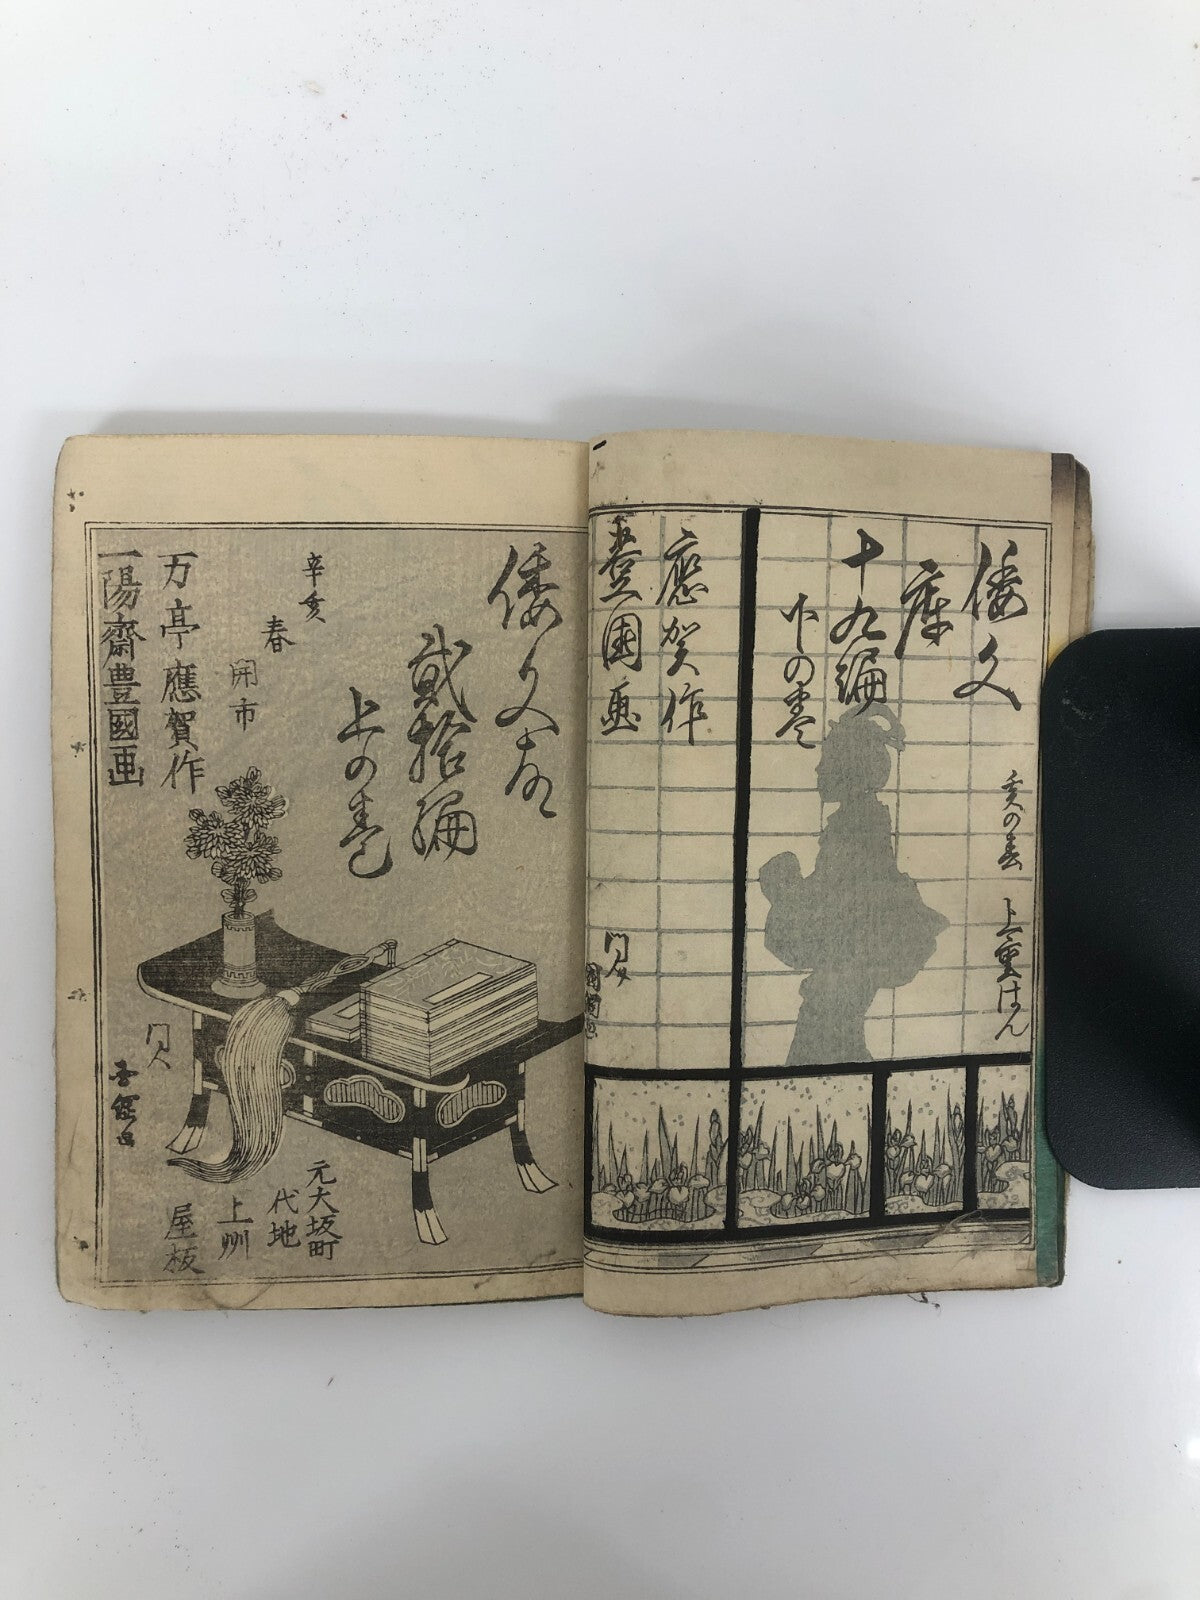 倭文
庫
十九編
下の巻
亥の春
上重はん
應賀作
豊國画
倭文庫
貮拾編
上の巻
辛亥
春
開市
万亭應賀作
一陽齋豊國画
元大坂町
代地
上州
屋板